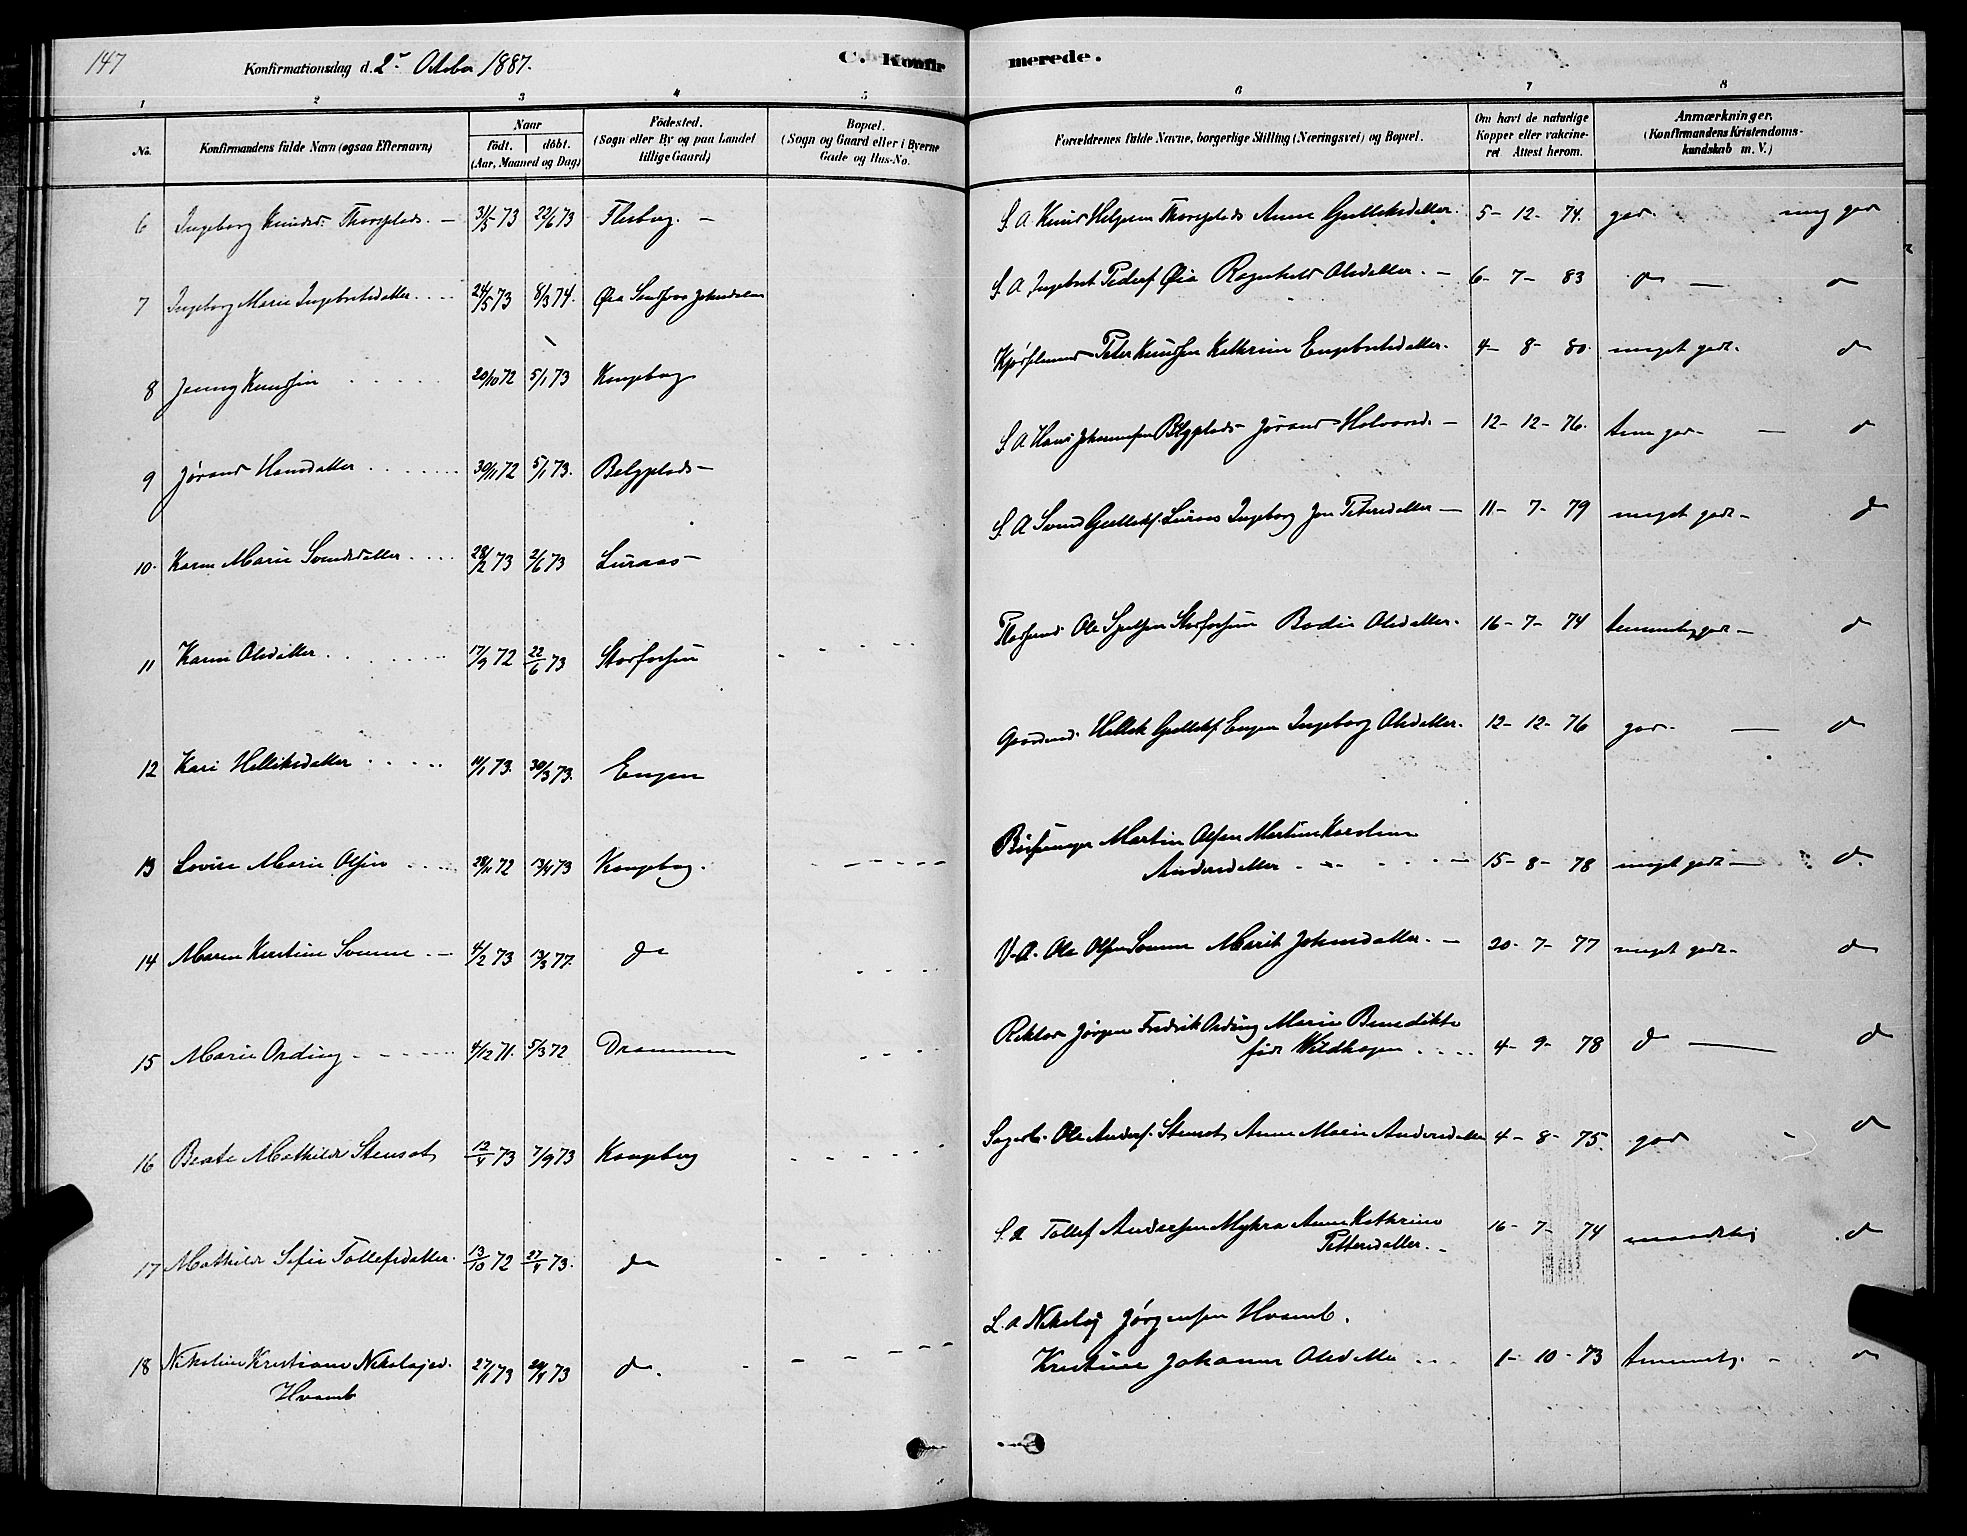 147
Konfirmationsdag d. 2den October 1887.
C. Konfir
merede.
1 2 3 4 5 6 7 8
No. Konfirmandens fulde Navn (ogsaa Efternavn) Naar født. døbt. (Aar, Maaned og Dag) Fødested. (Sogn eller By og paa Landet tillige Gaard) Bopæl. (Sogn og Gaard eller i Byerne Gade og Hus-No. Forældrenes fulde Navne, borgerlige Stilling (Næringsvei) og Bopæl. Om havt de naturlige Kopper eller vakcineret Attest herom. Anmærkninger. (Konfirmandens Kristendomskundskab m. V.)
6 Ingeborg Knudsd. Thorsplads. 31/5 73 22/6 73 Flesberg. S. A Knud Helgesen Thorsplads Anne Gulliksdatter. 5-12-74. god. meg god
7 Ingeborg Marie Ingebretsdatter 24/5 73 8/3 74. Øia Johndalen S. A Ingebret Peders. Øia Ragnhild Olsdatter. 6-7-83 do do
8 Jenny Knutsen 20/10 72 5/1 73 Kongsberg Peter Knutsen Kathrine Engebretsdatter. 4-8-80. meget godt. do
9 Jørand Hansdatter 30/11 72 5/1 73. Belgplads S. A Hans Johannesen Belgplads Jørand Halvorsd. 12-12-76. tem god do
10. Karen Marie Svendsdatter 28/2 73 2/6 73 Luraas S. A Svend Gulliks. Luraas Ingeborg Petersdatter 11-7-79 meget godt do
11 Karen Olsdatter 17/9 72 22/6 73 Ole Bodil Olsdatter. 16-7-74 temmelig god do
12 Kari Helliksdatter 19/1 73. 30/3 73. Engen Gaardmd. Hellek Gulliks. Engen Ingeborg Olsdatter. 12-12-76 god. do
13 Lovise Marie Olsen 28/11 72 13/4 73 Kongsberg. Martin Olsen Martine Karoline
Andersdatter 15-8-78 meget godt do.
14 Maren Kristine Somme 4/2 73 13/3 77. do V. A. Ole Olsen Somme Marit Johnsdatter. 20-7-77 meget godt do
15 Marie Ording 4/12 71. 5/3 72 Drammen Rektor Jørgen Fredrik Ording Marie Benedikte
født Wildhagen 4-9-78 do do
16 Beate Mathilde Stensat 12/4 73 7/9 73 Kongsberg Ole Anders. Stensat Anne Marie Andersdatter 4-8-75. god do
17 Mathilde Sofie Tollefsdatter. 13/10 72 27/4 73. do S. A Tollef Andersen Myhra Anne Kathrine
Pettersdatter. 16-7-74 maadelig do
18 Nikoline Kristiane Nikolajsd.
Hvamb 27/1 73 20/4 73 do. L. A Nikolaj Jørgensen Hvamb.
Kristine Johanne Olsdatter 1-10-73 temmelig do